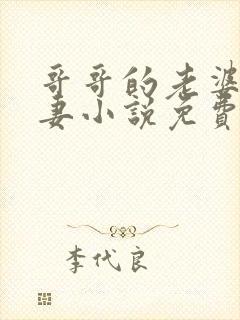 哥哥的老婆
妻小説免費
李代良